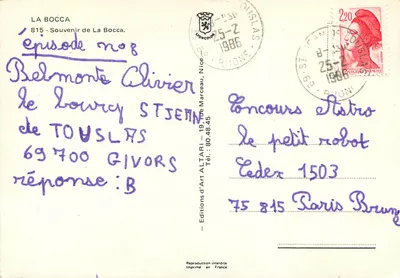 LA BOCCA
815 - Souvenir de La Bocca.
épisode no8
Belmonte Olivier
le bourg ST JEAN
de TOUSLAS
69700 GIVORS
réponse : B
- Editions d'Art ALTARI - 19, rue Marceau, Nice -
Tél.: 80.48.45
25-2
1986
RHONE
2,20
25-2
1986
Concours Astro
le petit robot
Cedex 1503
75 815 Paris Brune
Reproduction interdite
Imprimé en France